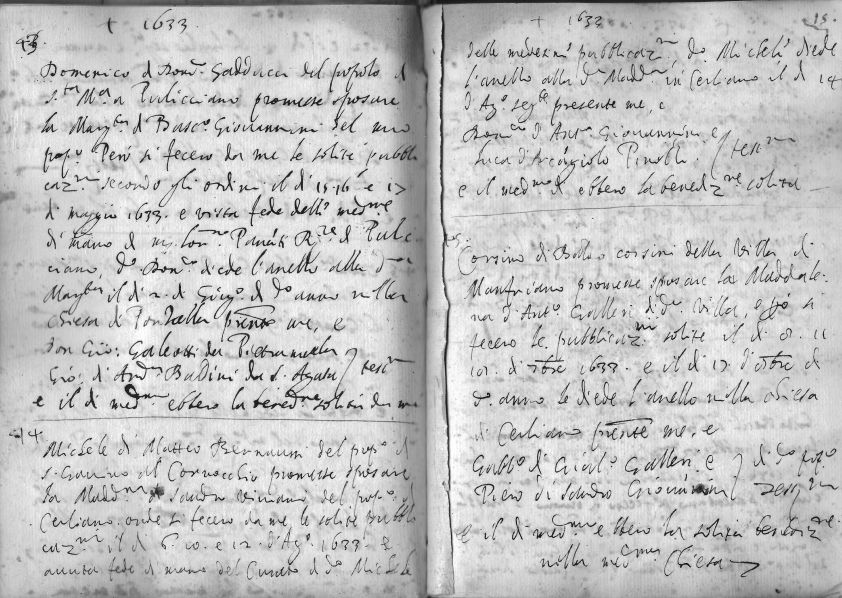 + 1633.
Domenico di Dom.co Gadducci del popolo di
S.ta M.a a Pulicciano promesse sposare
la Marg.ta di Basc.o Giovannini del mio
pop.o Però si fecero da me le solite pubbli
caz.ni secondo gli ordini il dì 15. 16. e 17
di maggio 1633. e vista fede dell' med.me
di mano di Pulic
ciano, d.o Dom.co diede l'anello alla d.ta
Marg.ta il dì 2. di Giug.o di d.o anno nella
chiesa di presente me, e
Don Gio: Galeotti da Pietramala
Gio: di And.a Baldini da S. Agata } test.ni
e il dì med.mo ebbero la bened.ne solita da me
14
Michele di Matteo del pop.o di
S. Gavino al Cornocchio promesse sposare
la Madd.na di Sandro del pop.o di
Cerliano. onde si fecero da me le solite pubbli
caz.ni il dì 6. 10. e 12. d'Ag.o 1633. e
avuta fede di mano del Curato di d.o Michele
+ 1633. 15.
delle medesime pubblicaz.ni d.o Michele diede
l'anello alla d.a Madd.na in Cerliano il dì 14
d'Ag.o seg.te presente me, e
Dom.co d'Ant.o Giovannini e
Luca d'Arcangiolo Pinolli } test.ni
e il med.mo dì ebbero la benediz.ne solita
Corsino di Corsini della Villa di
Manfriano promesse sposare la Maddale
na d'Ant.o Galleri di d.a Villa, e però si
fecero le pubblicaz.ni solite il dì 8. 11
10. di 7bre 1633. e il dì 17 d'8bre di
d.o anno le diede l'anello nella chiesa
di Cerliano presente me, e
Gabb.o di Galleri, e } di d.o pop.o
Piero di Sandro Giovannini } test.ni
e il dì med.mo ebbero la solita benediz.ne
nella med.ma Chiesa